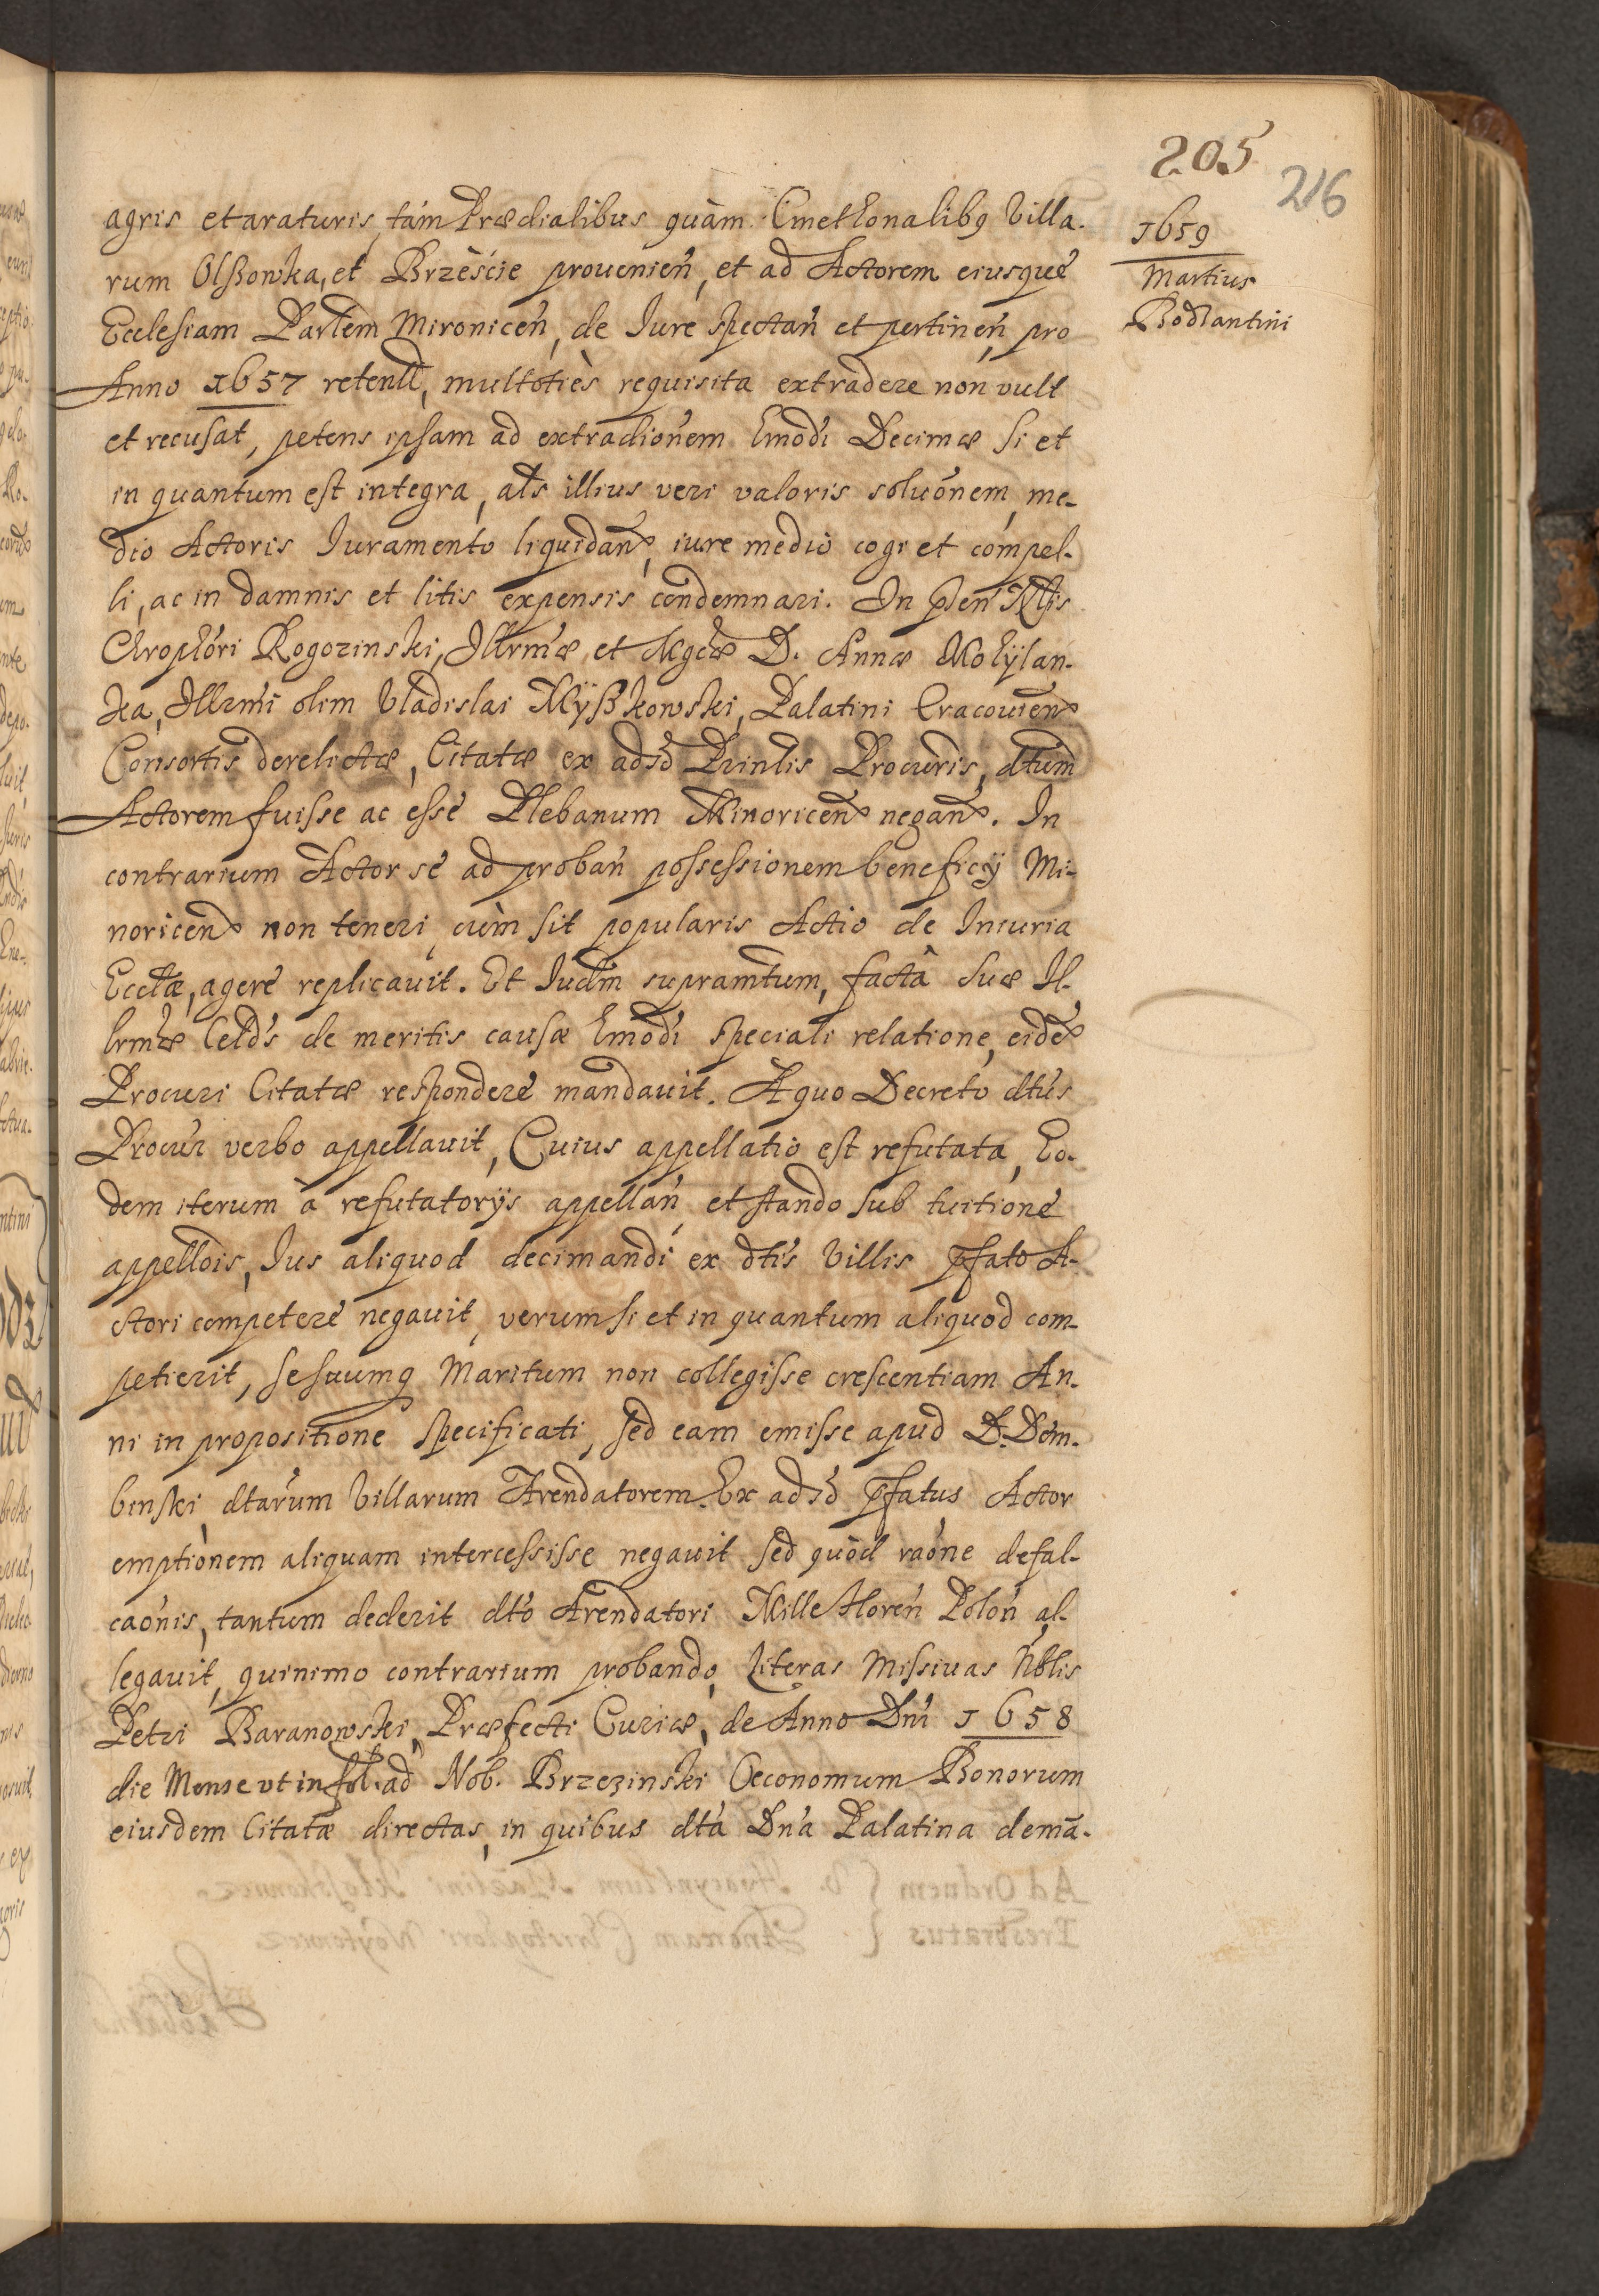 205
216
1659
Martius
Bodzantini
agris et araturis, tam Prædialibus quàm Cmethonalibq Villa-
rum Olßowka, et Brzeście prouenień, et ad Actorem eiusque
Ecclesiam Parlem Mironiceń, de Iure spectań et pertineń, pro
Anno 1657 retent, multoties requisita extradere non vult
et recusat, petens ipsam ad extradiōnem hmōdi Decimæ si et
in quantum est integra, als illius veri valoris soluōnem, me-
dio Actoris Iuramento liquidan, iure medio cogi et compel-
li, ac in damnis et litis expensis condemnari. In pń Nlis
Chrophōri Rogozinski, Illrmæ et Mgcæ D. Annæ Mohÿlan-
ka, Illrmi olim Vladislai Mÿßkowski, Palatini Cracouien
Consortis derelictæ, Citatæ ex adső Prinlis Procuris, dtum
Actorem fuisse ac esse Plebanum Minoricen negan. In
contrarium Actor se ad probań possessionem beneficÿ Mi-
noricen non teneri, cùm sit popularis Actio de Iniuria
Ecclæ, agere replicauit. Et Iudm supramtum, factâ suæ Il-
lrmæ Celds de meritis causæ hmōdi speciali relatione, eide
Procuri Citatæ respondere mandauit. A quo Decreto dtus
Procur verbo appellauit, Cuius appellatio est refutata, Eo-
dem iterum à refutatorÿs appellań, et stando sub tuitione
appellōis, Ius aliquod decimandi ex dtis Villis pfato A-
ctori competere negauit, verum si et in quantum aliquod com-
petierit, se suumq Maritum non collegisse crescentiam An-
ni in propositione specificati, sed eam emisse apud D. Dem-
binski, dtarum Villarum Arendatorem. Ex adső pfatus Actor
emptionem aliquam intercessisse negauit sed quòd raōne defal-
caōnis, tantum dederit dto Arendatori Mille floreń Poloń, al-
legauit, quinimo contrarium probando, literas missiuas Nblis
Petri Baranowski, Præfecti Curiæ, de Anno Dni 1658
die Mense vt in fol. ad Nob. Brzezinski Œconomum Bonorum
eiusdem Citatæ directas, in quibus dta Dna Palatina demā-